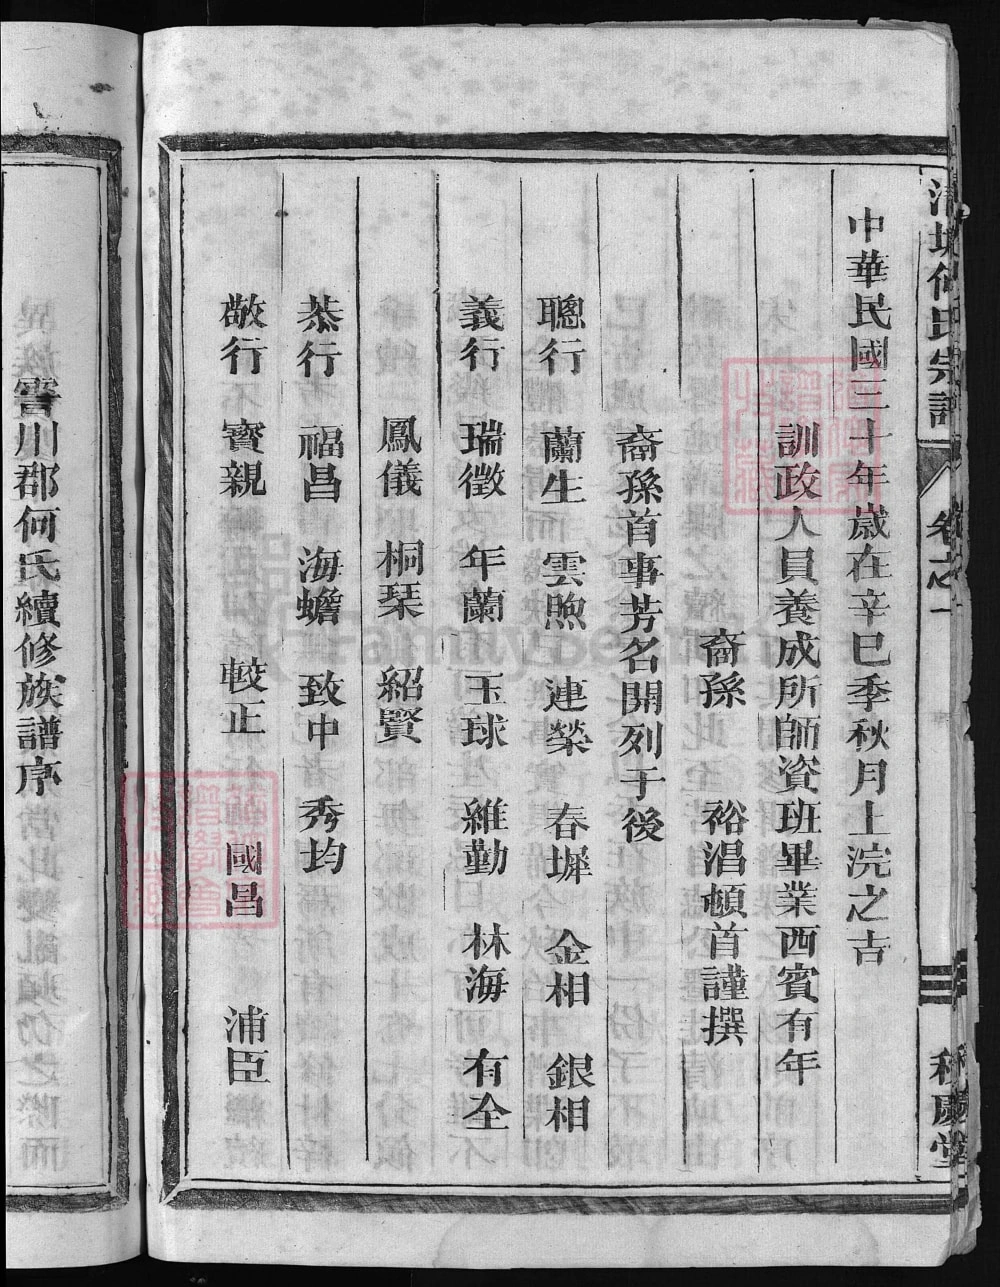 清塘何氏宗譜
卷之一
中華民國三十年歲在辛巳季秋月上浣之吉
訓政人員養成所師資班畢業西賓有年
裔孫 裕淐頓首謹撰
裔孫首事芳名開列于後
聰行 蘭生 雲煦 連榮 春墀 金相 銀相
義行 瑞徵 年蘭 玉球 維勤 林海 有全
鳳儀 桐琹 紹賢
恭行 福昌 海蟾 致中 秀均
敬行 寶親 較正 國昌 浦臣
郡何氏續修族譜序